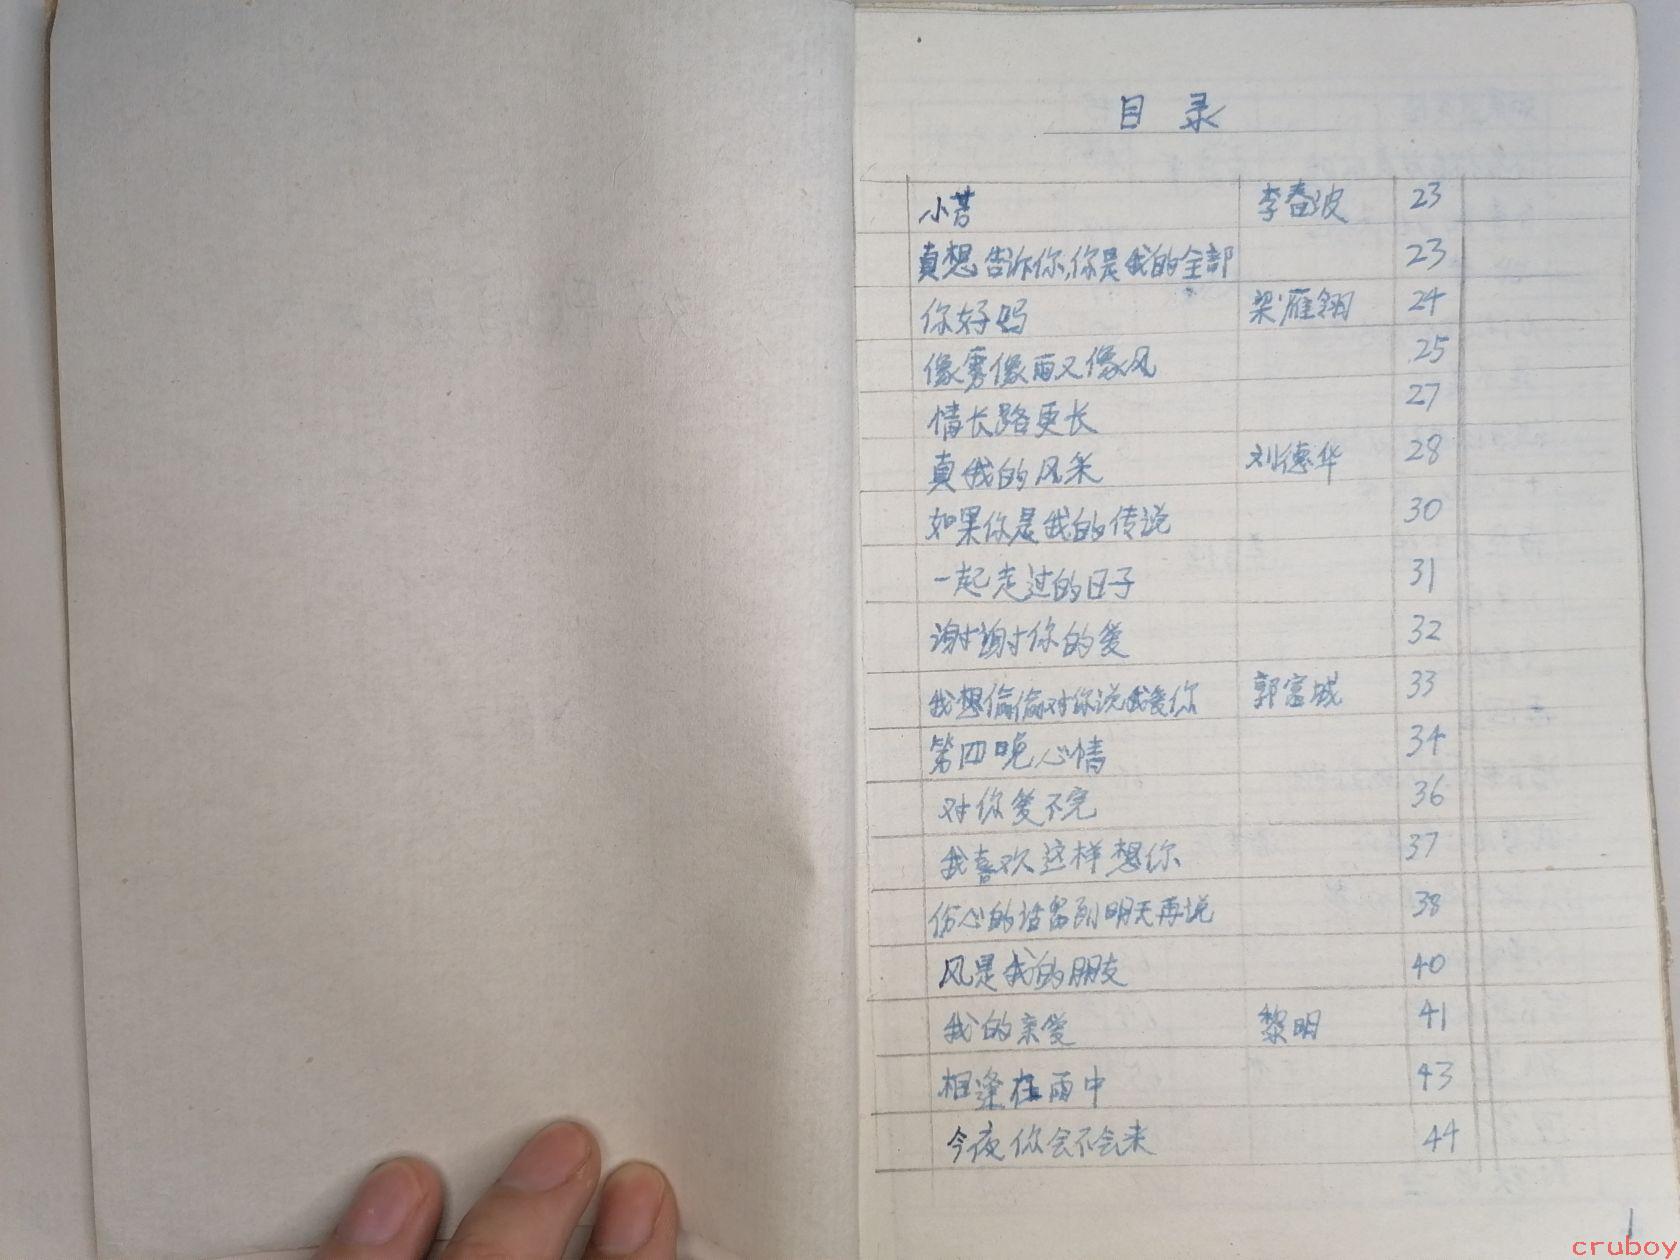 目录
小芳 李春波 23
真想告诉你,你是我的全部 23
你好吗 梁雁翎 24
像雾像雨又像风 25
情长路更长 27
真我的风采 刘德华 28
如果你是我的传说 30
一起走过的日子 31
谢谢你的爱 32
我想偷偷对你说我爱你 郭富城 33
第四晚心情 34
对你爱不完 36
我喜欢这样想你 37
伤心的话留到明天再说 38
风是我的朋友 40
我的亲爱 黎明 41
相逢在雨中 43
今夜你会不会来 44
1
cruboy